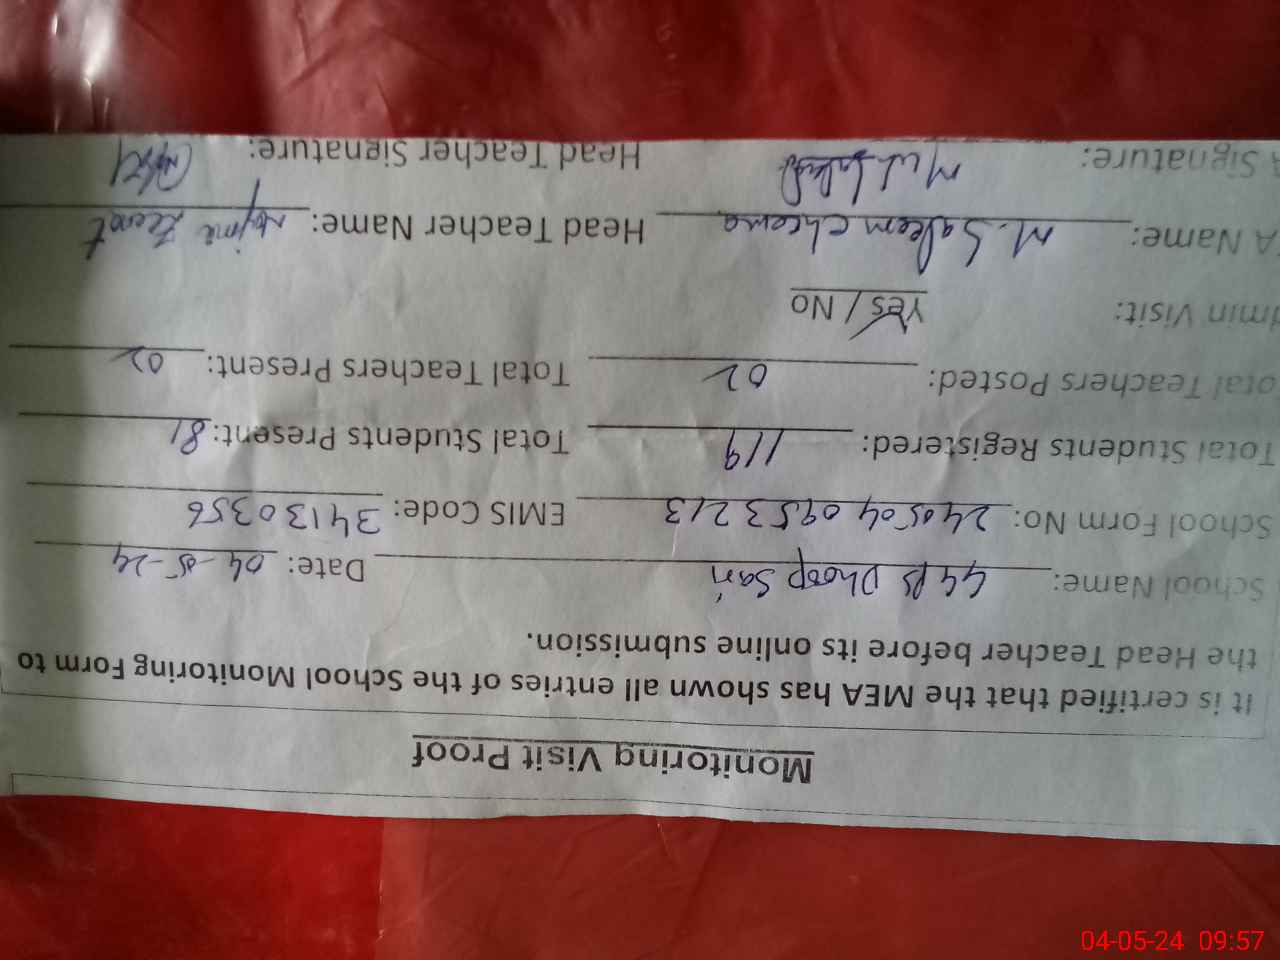 Monitoring Visit Proof
It is certified that the MEA has shown all entries of the School Monitoring Form to
the Head Teacher before its online submission.
School Name: GGPS Dhoop Sari Date: 04-05-24
School Form No: 240504 0953213 EMIS Code: 34130356
Total Students Registered: 119 Total Students Present: 81
otal Teachers Posted: 02 Total Teachers Present: 02
dmin Visit: Yes / No
A Name: M. Saleem Cheema Head Teacher Name: Najma
A Signature: Head Teacher Signature:
04-05-24 09:57